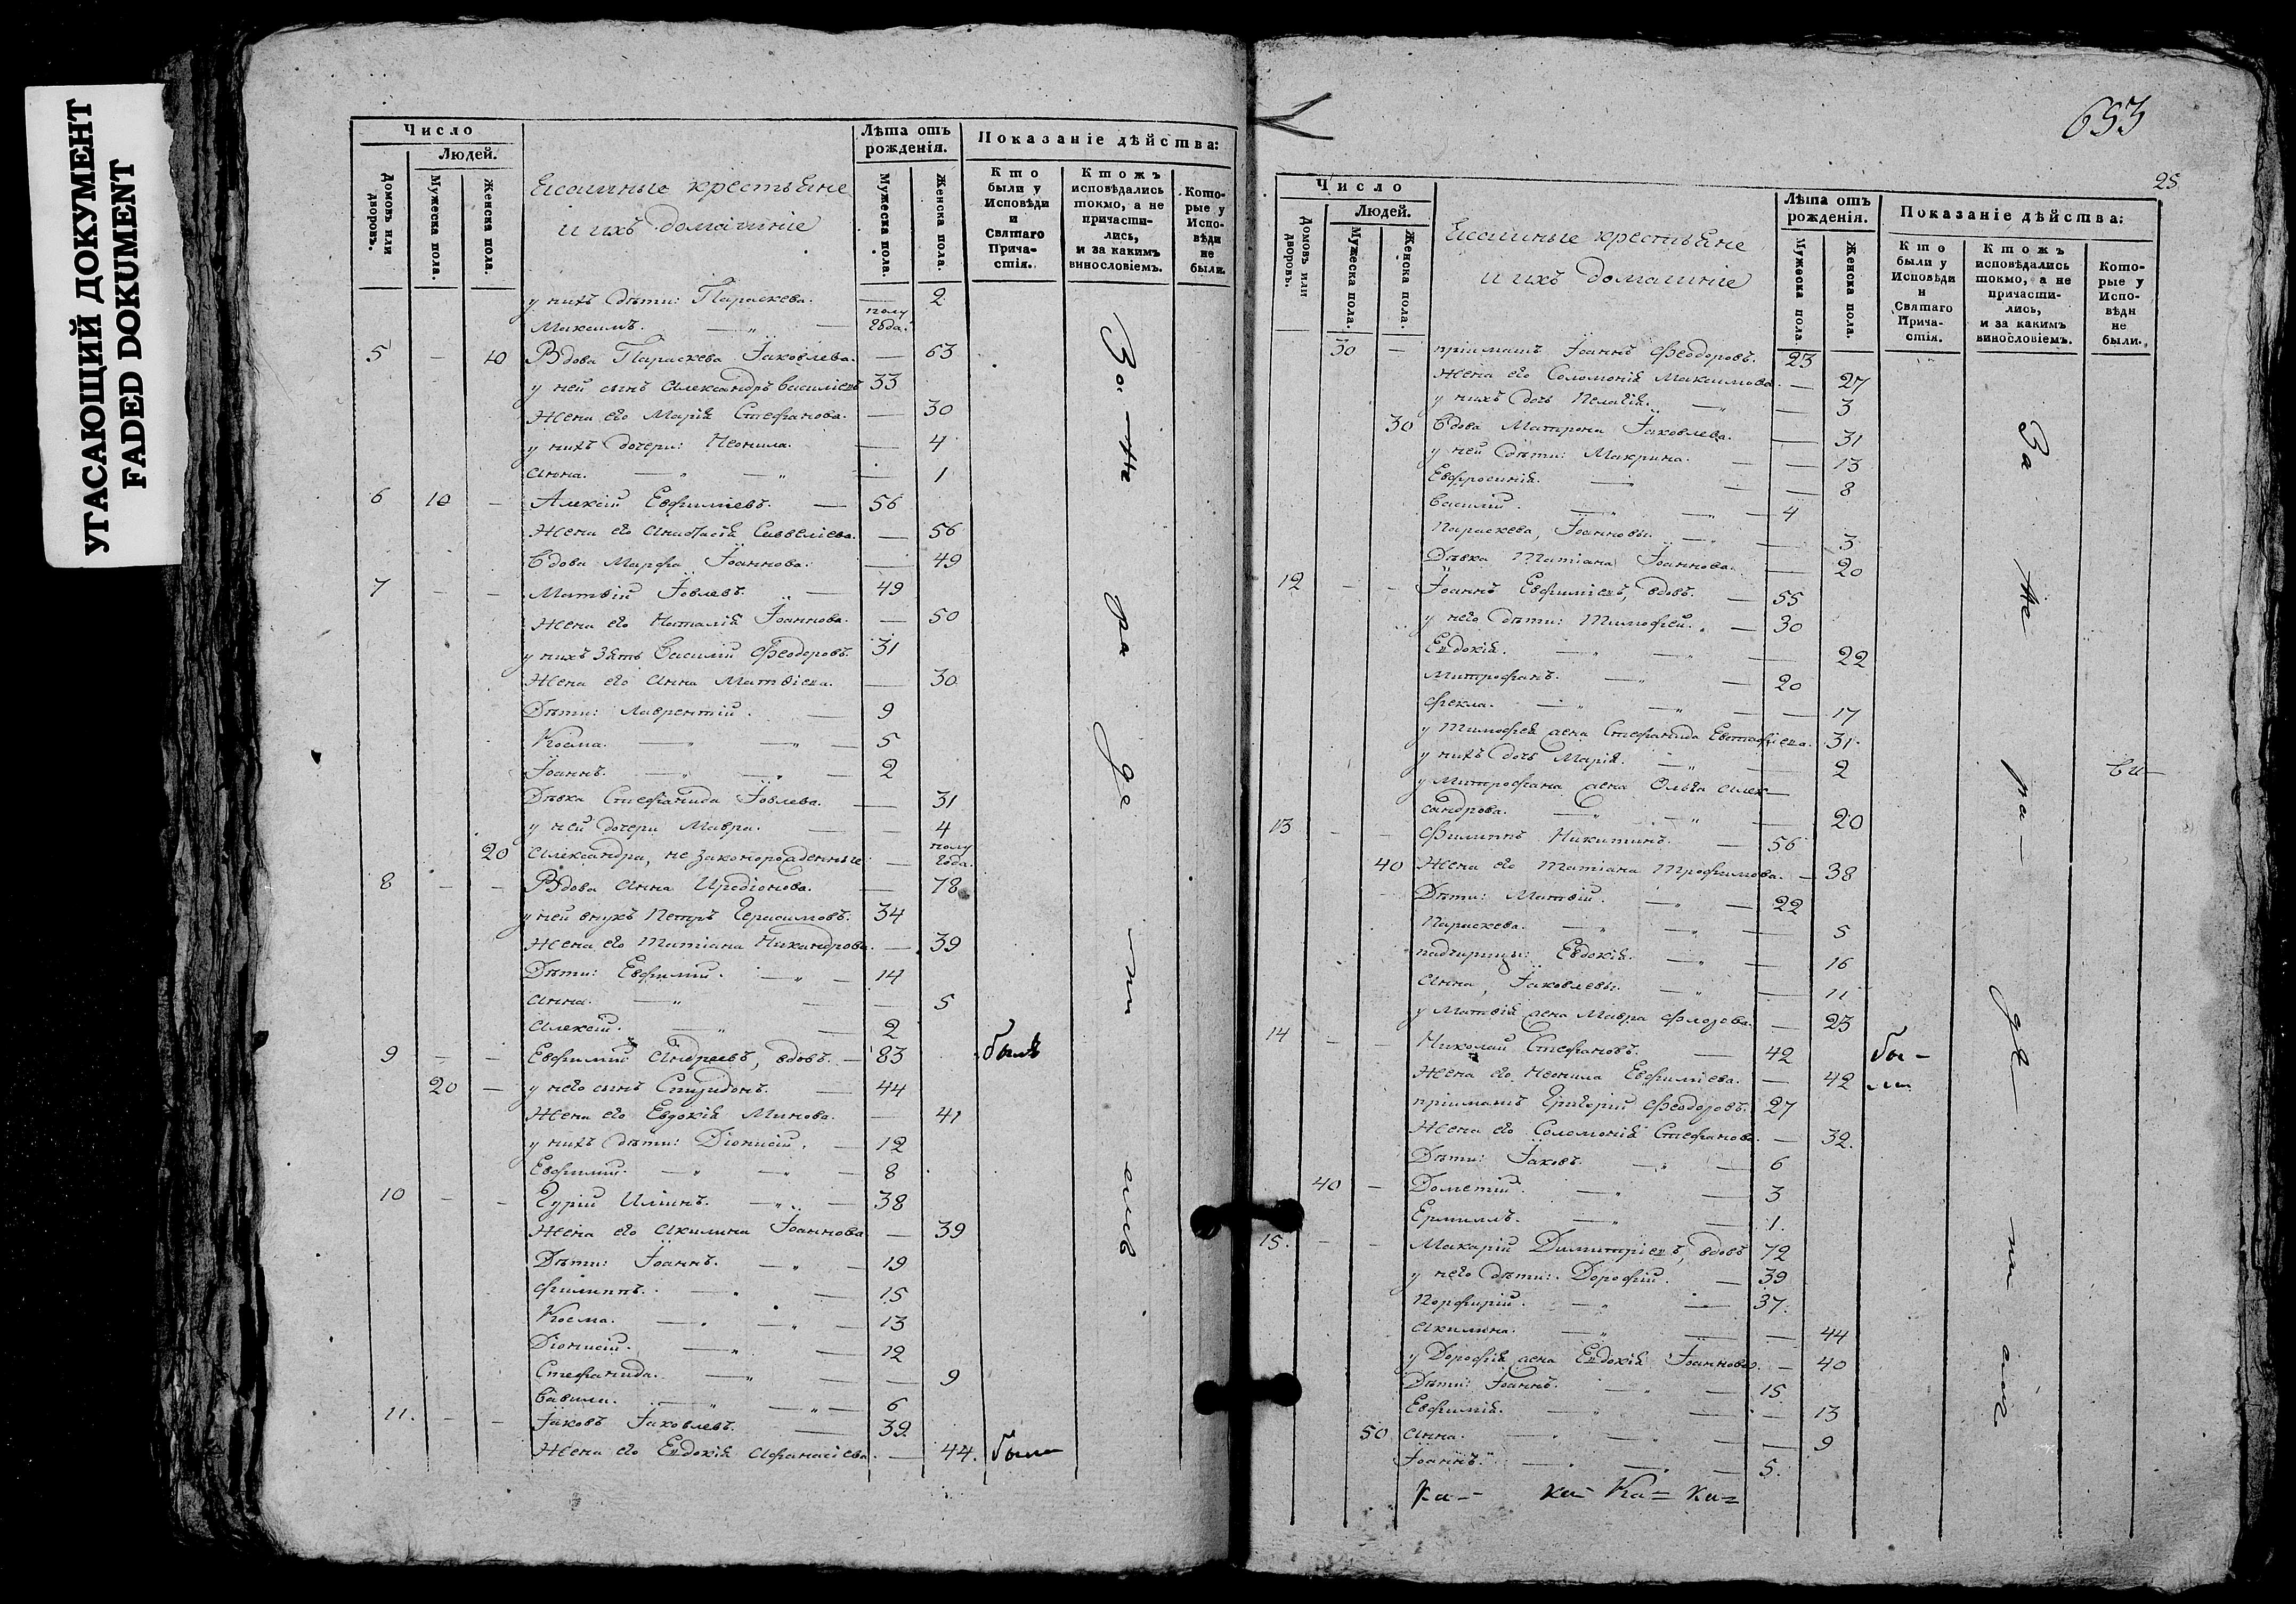 УГАСАЮЩИЙ ДОКУМЕНТ
FADED DOKUMENT
Число
Людей.
Домовъ или дворовъ.
Мужеска пола.
Женска пола.
крестьяне
и ихъ домашніе
Лѣта отъ рожденія.
Мужеска пола.
Женска пола.
Показаніе дѣйства:
Кто были у Исповѣди и Святаго Прича-стія.
Ктожъ исповѣдались токмо, а не причасти-лись, и за какимъ винословіемъ.
Кото-рые у Испо-вѣди не были.
у нихъ дѣти: Параскева. — 2
Максимъ. — полу года.
5 — 10 Вдова Параскева Іаковлева. — 63
у ней сынъ Александръ Васильевъ 33
Жена его Марія Стефанова. — 30
у нихъ дочери: Неонила. — 4
Анна. — 1
6 10 — Алексій Евфиміевъ. — 56
Жена его Анастасія Савеліева. — 56
Вдова Марфа Іоаннова. — 49
7 — — Матвій Іовлевъ. — 49
Жена его Наталія Іоаннова. — 50
у нихъ зять Василій Феодоровъ. 31
Жена его Анна Матвіева. — 30
Дѣти: Лаврентій. — 9
Косма. — 5
Іоаннъ. — 2
Дѣвка Стефанида Іовлева. — 31
у ней дочери Мавра. — 4
20 Александра, не законорожденные. — полу года.
8 — — Вдова Анна Иродіонова. — 78
у ней внукъ Петръ Герасимовъ. 34
Жена его Татіана Никандрова. — 39
Дѣти: Евфимій. — 14
Анна. — 5
Алексій. — 2
9 — — Евфимій Андреевъ, вдовъ. — 83 былъ
20 — у него сынъ Спиридонъ. — 44
Жена его Евдокія Минова. — 41
у нихъ дѣти: Діонисій. — 12
Евфимій. — 8
10 — — Гурій Ильинъ. — 38
Жена его Акилина Іоаннова — 39
Дѣти: Іоаннъ. — 19
Филиппъ. — 15
Косма. — 13
Діонисій. — 12
Стефанида. — 9
Вавила. — 6
11. — — Іаковъ Іаковлевъ. — 39.
Жена его Евдокія Афанасіева. — 44. была
За не ра де ні емъ
653
25
Число
Людей.
Домовъ или дворовъ.
Мужеска пола.
Женска пола.
крестьяне
и ихъ домашніе
Лѣта отъ рожденія.
Мужеска пола.
Женска пола.
Показаніе дѣйства:
Кто были у Исповѣди и Святаго Прича-стія.
Ктожъ исповѣдались токмо, а не причасти-лись, и за какимъ винословіемъ.
Кото-рые у Испо-вѣди не были.
30 — пріимашъ Іоаннъ Феодоровъ. 23
Жена его Соломонія Максимова. — 27
у нихъ дочь Пелагія. — 3
30 Вдова Матрона Іаковлева. — 31
у ней дѣти: Макрина. — 13
Евфросинія. — 8
Василій. — 4
Параскева, Іоанновы. — 3
Дѣвка Татіана Іоаннова. — 20
12 — — Іоаннъ Евфиміевъ, вдовъ. — 55
у него дѣти: Тимофей. — 30
Евдокія. — 22
Митрофанъ. — 20
Фекла. — 17
у Тимофея жена Стефанида Евстафіева. 31.
у нихъ дочь Марія. — 2
у Митрофана жена Ольга Алек-
сандрова. — 20
13 — — Филиппъ Никитинъ. — 56
40 Жена его Татіана Трофимова. — 38
Дѣти: Матвій. — 22
Параскева. — 5
падчерицы: Евдокія. — 16
Анна, Іаковлевы. — 11
у Матвія жена Мавра Флорова. — 23
14 — — Николай Стефановъ. — 42 бы-
Жена его Неонила Евфиміева. — 42 ли
пріимашъ Григорій Феодоровъ. 27
Жена его Соломонія Стефанова. — 32.
Дѣти: Іаковъ. — 6
40 — Дометій. — 3
Ермилъ. — 1.
15. — — Макарій Димитріевъ, вдовъ 72
у него дѣти: Дорофей. — 39
Порфирій. — 37.
Акилина. — 44
у Дорофея жена Евдокія Іоаннова. — 40
Дѣти: Іоаннъ. — 15
Евфимія. — 13
50 Анна. — 9
Іоаннъ. — 5.
За не ра- де- ні емъ